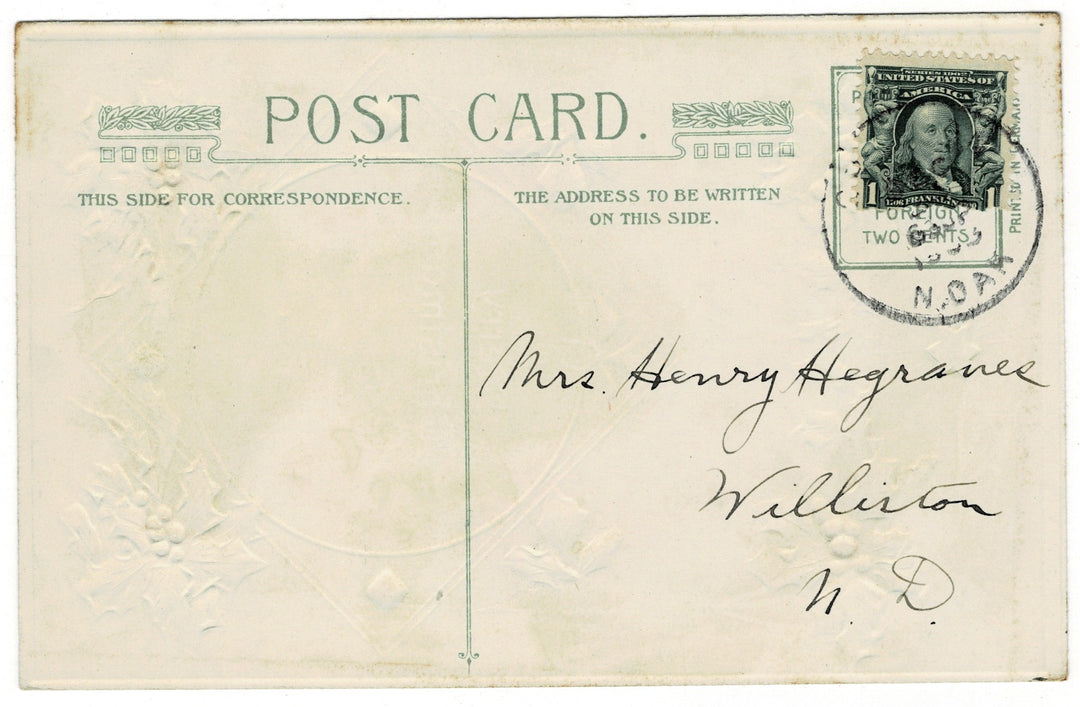 POST CARD.
THIS SIDE FOR CORRESPONDENCE.
THE ADDRESS TO BE WRITTEN
ON THIS SIDE.
SERIES 1902
UNITED STATES OF
AMERICA
1 1
FRANKLIN
FOREIGN
TWO CENTS.
PRINTED IN
N. DAK
Mrs. Henry Hegranes
Williston
N. D.